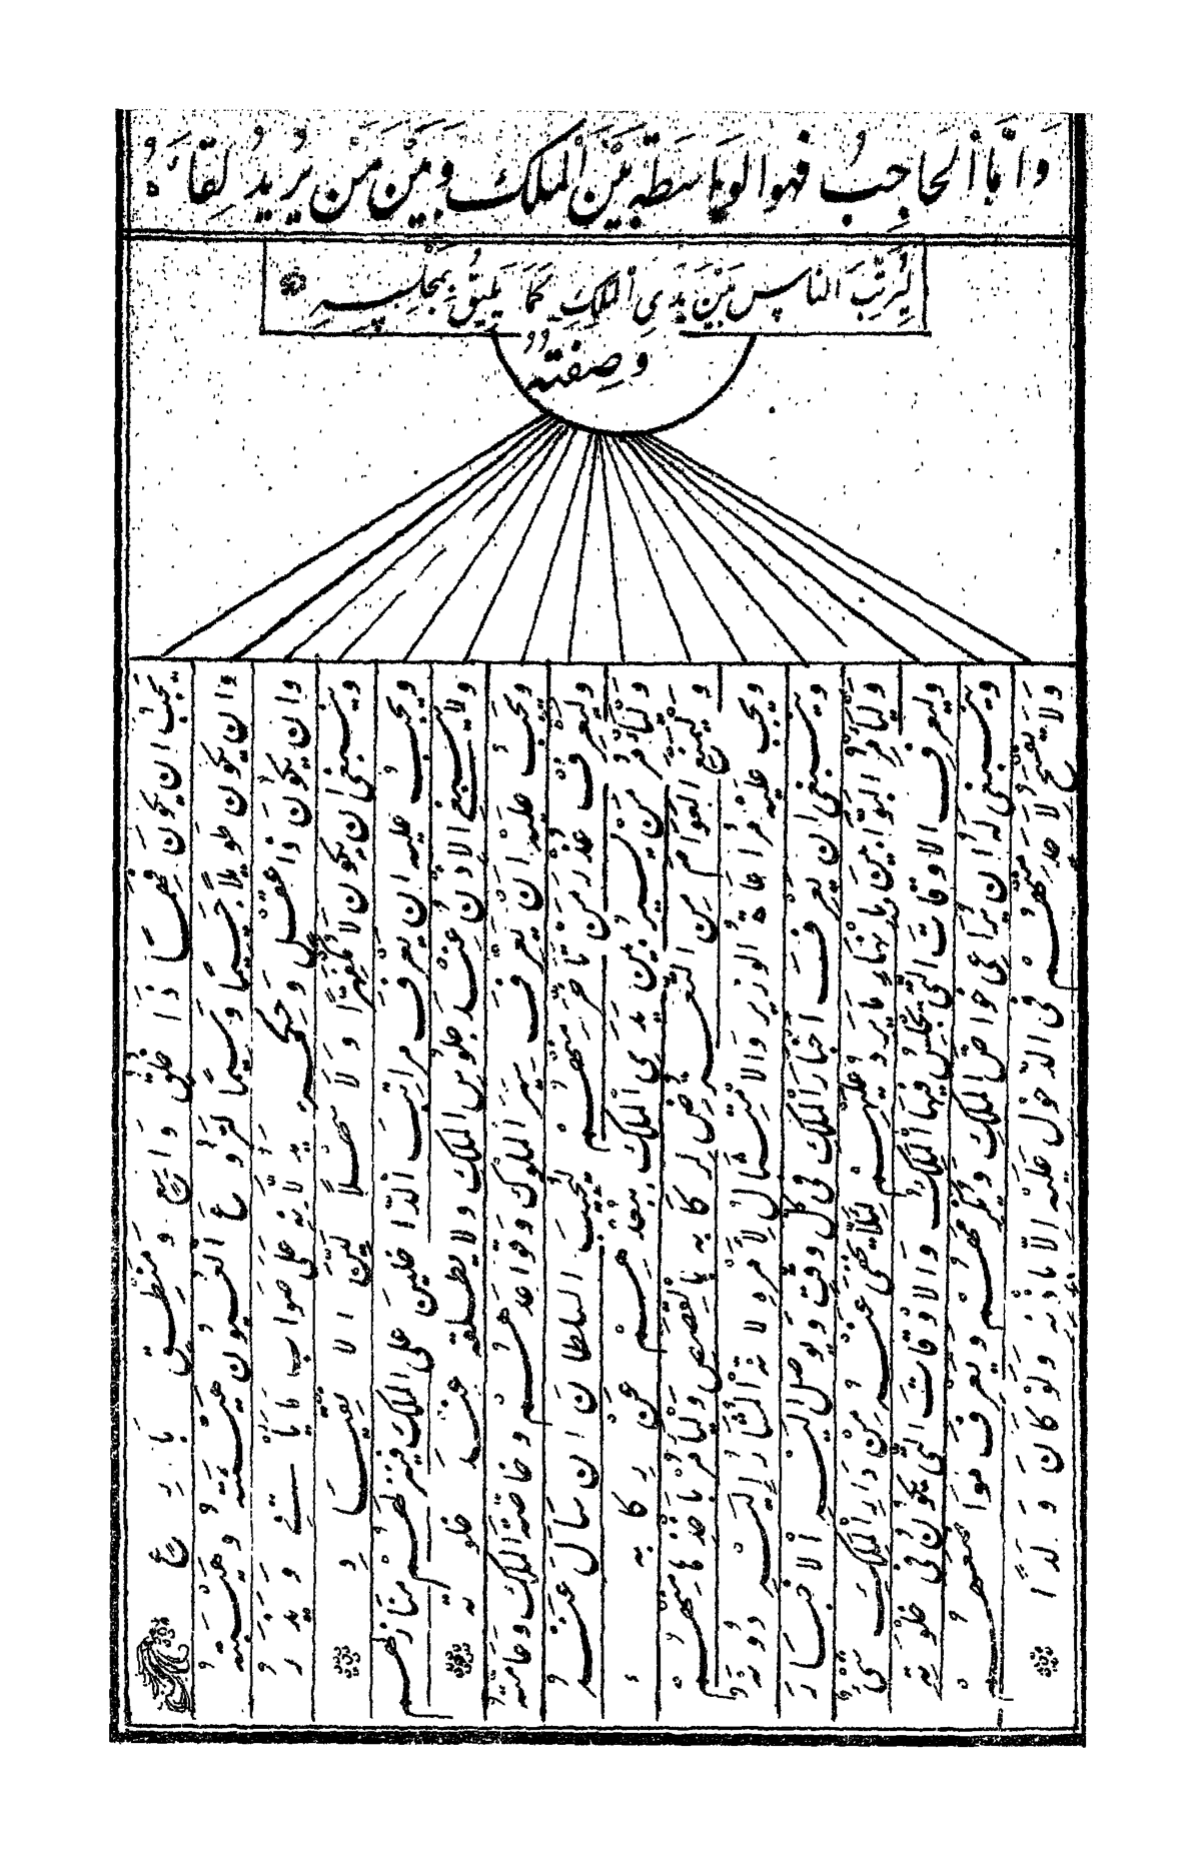 وَاَمَّا الْحَاجِبُ فهو الوَاسَطَة بَيْنَ الْمَلِكِ وَبَيْنَ مَنْ يُرِيدُ لِقَاءَهُ
لِيُرَتِّبَ الناس بَيْنَ يَدَيِ الْمَلِكِ كَمَا يَلِيقُ بِمَجْلِسِهِ
وَصِفَتُهُ
يجب ان يكون فهما ذا خلق واسع ومنطق بارع
وان يكون طويلا جسيما وسيما لتروع العيون هيئته وهيبته
وان يكون ذا عقل وحكم يدلانه على صواب ما يأتيه ويذره
وينبغي ان يكون لا مكفهرا ولا سهلا لين الانقياد
ويجب عليه ان يعرف مراتب الداخلين على الملك فينزلهم منازلهم
ولا ينبغي الاذن عند جلوس الملك ولا يطلقه عند خلوته
ويجب عليه ان يعرف سير الملوك وقواعدهم وخاصة الملك وعاميته
وليعرف عذر من تأخر منهم ليجيب السلطان ان سأل عنه
وليأمر من يسير بين يدي الملك يبعدهم عن ركابه
وليمنع العوام من التعرض لركابه بالقصص وليأمر باخذها منهم
ويجب عليه مراعاة الوزير والامتثال لامره لانه المشار اليه دونه
وينبغي ان يعرف اخبار الملك في كل وقت ويوصل اليه الاخبار
وليأمر البوابين بانهاء ما يرد عليهم لئلا يخفى عنه من دار الملك شئ
وليعرف الاوقات التي يجلس فيها الملك والاوقات التي يكون في خلوته
وينبغي له ان يراعي خواص الملك ويكرمهم ويعرف مواضعهم
ولا يفسح لاحد منهم في الدخول عليه الا باذنه ولو كان ولدا